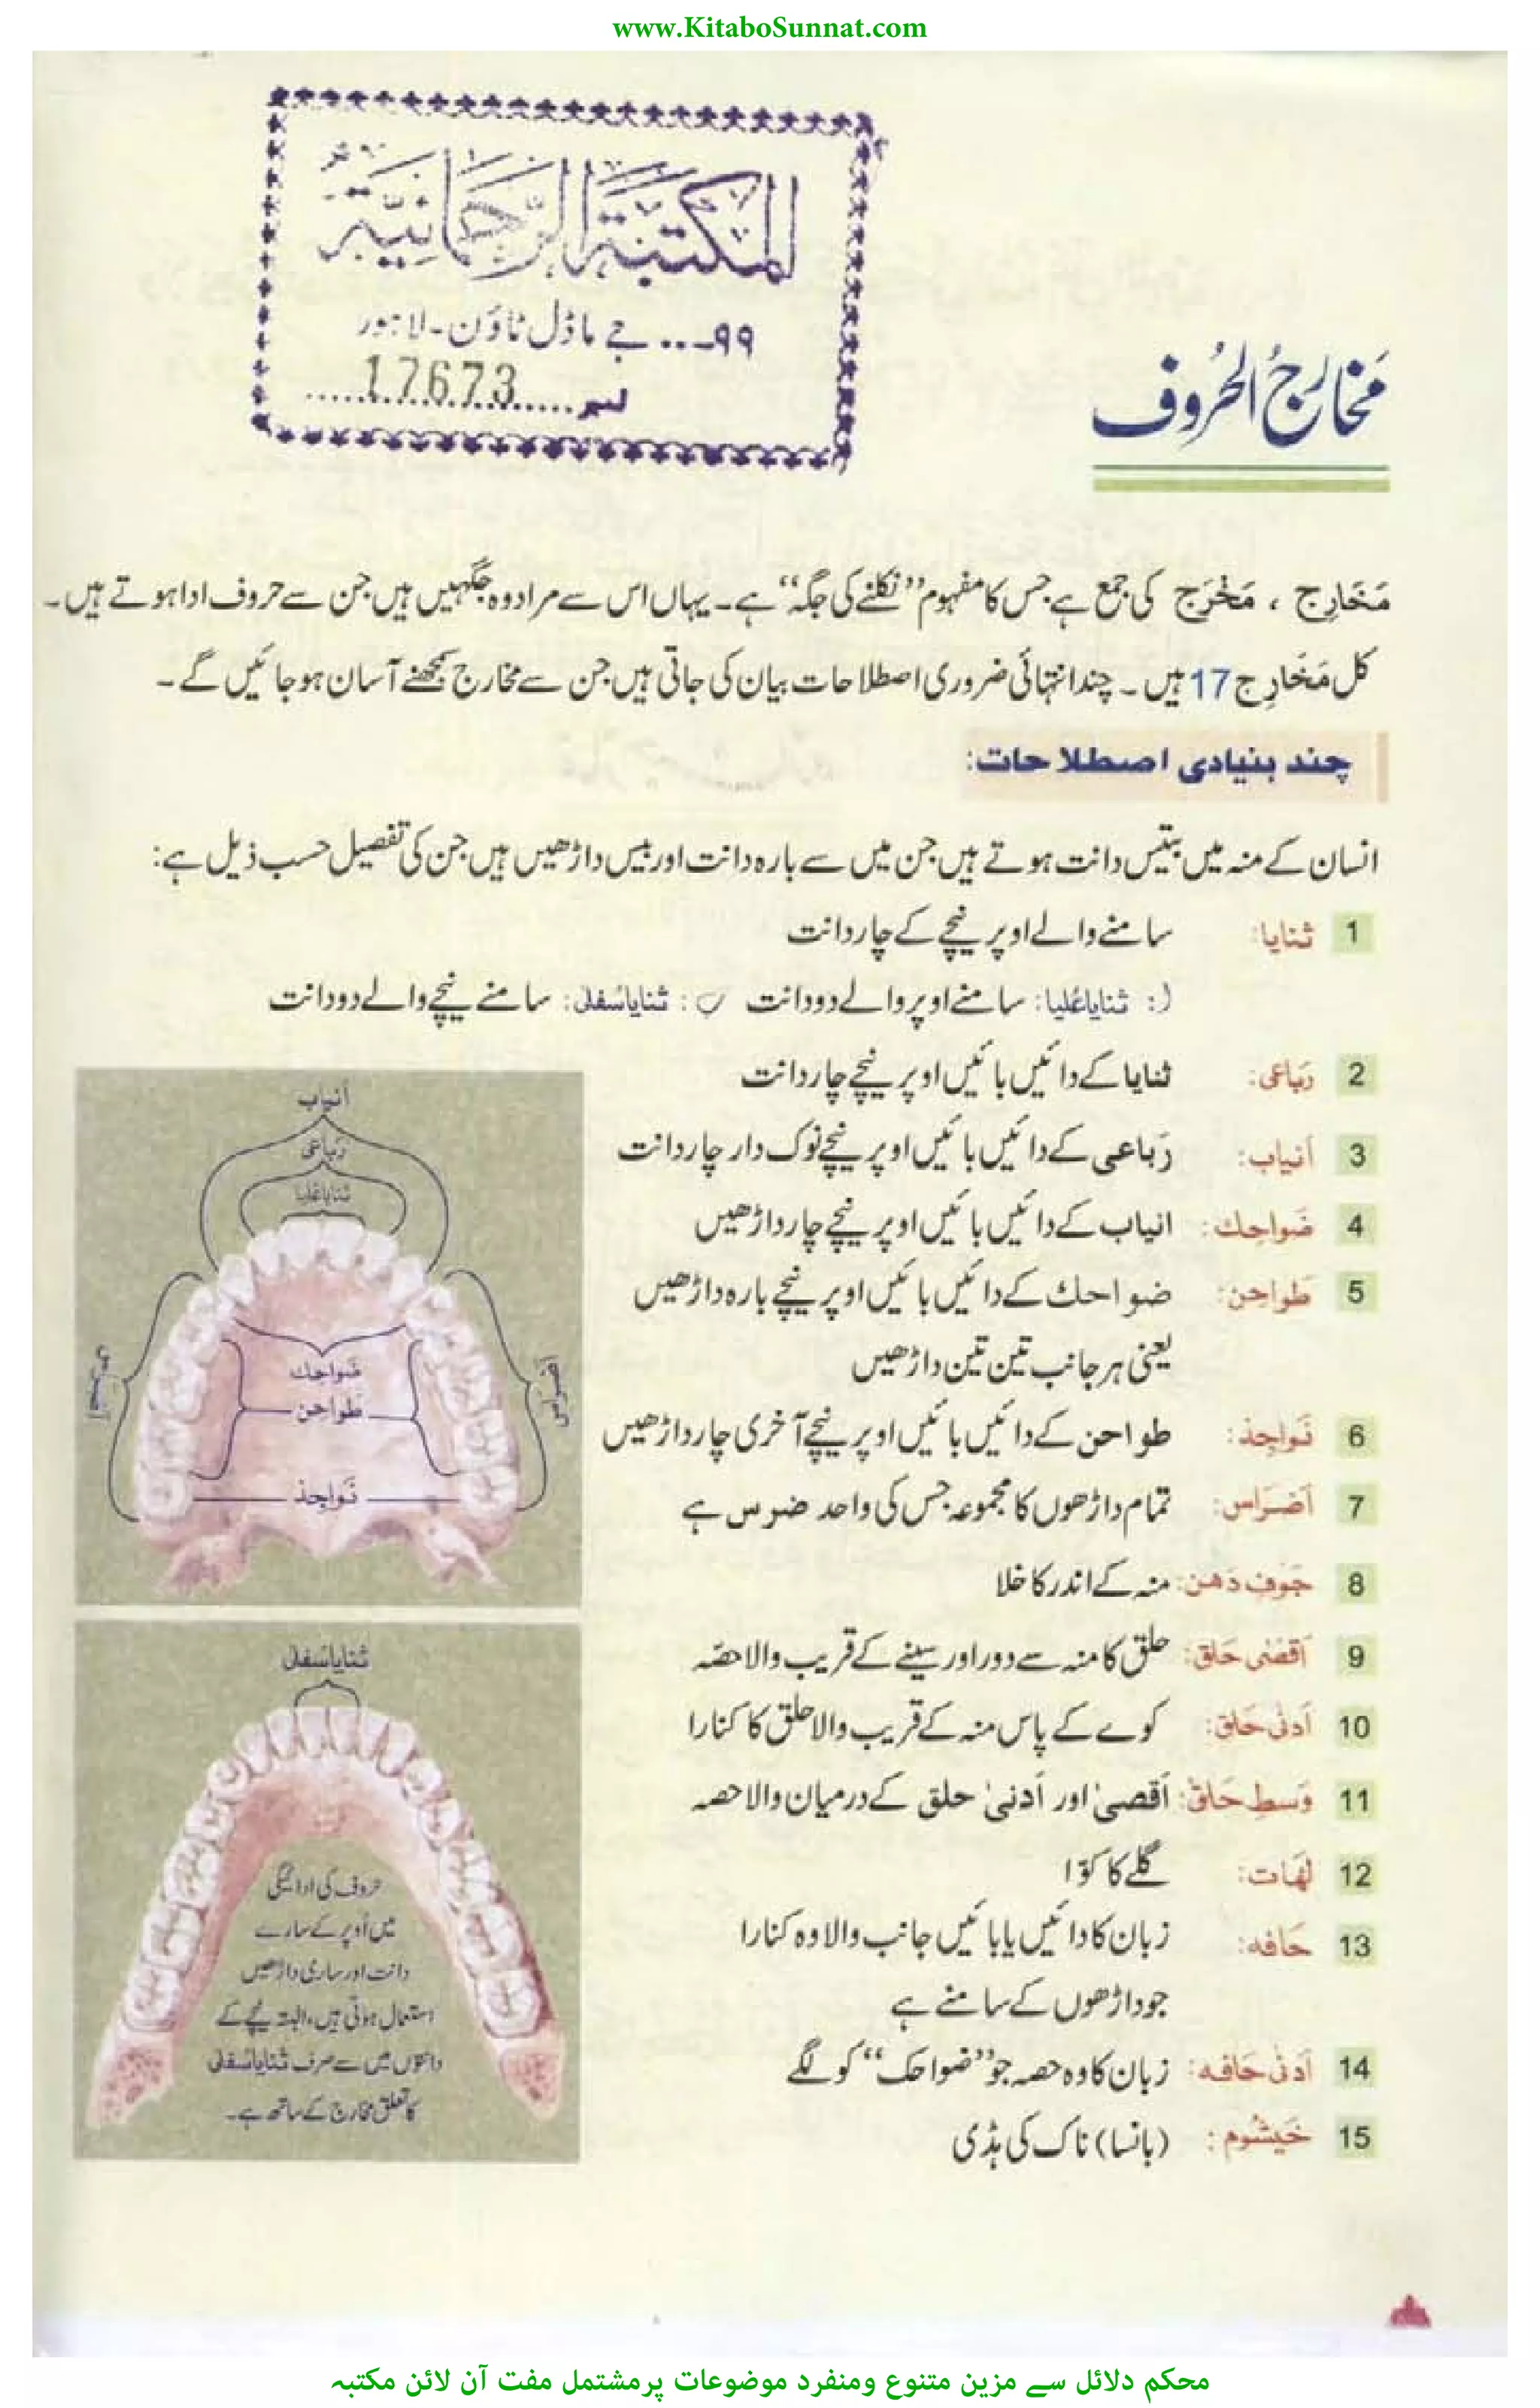 www.KitaboSunnat.com
المكتبة الرحمانية
۹۹-... جے ماڈل ٹاؤن - لاہور
نمبر 17673
مَخَارِجُ الحُرُوف
مَخَارِج ، مَخْرَج کی جمع ہے جس کا مفہوم ”نکلنے کی جگہ“ ہے۔ یہاں اس سے مراد وہ جگہیں ہیں جن سے حروف ادا ہوتے ہیں۔
کل مَخَارِج 17 ہیں۔ چند انتہائی ضروری اصطلاحات بیان کی جاتی ہیں جن سے مخارج سمجھنے آسان ہو جائیں گے۔
چند بنیادی اصطلاحات:
انسان کے منہ میں بتیس دانت ہوتے ہیں جن میں سے بارہ دانت اور بیس داڑھیں ہیں جن کی تفصیل حسب ذیل ہے:
1 ثنایا: سامنے والے اوپر نیچے کے چار دانت
ا: ثنایا عُلیا: سامنے اوپر والے دو دانت ب: ثنایا سُفلیٰ: سامنے نیچے والے دو دانت
2 رَباعی: ثنایا کے دائیں بائیں اوپر نیچے چار دانت
3 اَنیاب: رَباعی کے دائیں بائیں اوپر نیچے نوک دار چار دانت
4 ضَواحِك: انیاب کے دائیں بائیں اوپر نیچے چار داڑھیں
5 طَواحِن: ضواحك کے دائیں بائیں اوپر نیچے بارہ داڑھیں
یعنی ہر جانب تین تین داڑھیں
6 نَواجِذ: طواحن کے دائیں بائیں اوپر نیچے آخری چار داڑھیں
7 اَضرَاس: تمام داڑھوں کا مجموعہ جس کی واحد ضرس ہے
8 جَوفِ دَهن: منہ کے اندر کا خلا
9 اَقصٰی حَلق: حلق کا منہ سے دور اور سینے کے قریب والا حصّہ
10 اَدنٰی حَلق: کوے کے پاس منہ کے قریب والا حلق کا کنارا
11 وَسطِ حَلق: اَقصیٰ اور اَدنیٰ حلق کے درمیان والا حصہ
12 لَهَات: گلے کا کوّا
13 حَافه: زبان کا دائیں یا بائیں جانب والا وہ کنارا
جو داڑھوں کے سامنے ہے
14 اَدنٰی حَافه: زبان کا وہ حصہ جو ”ضواحک“ کو لگے
15 خَیشُوم: (بانسا) ناک کی ہڈی
اَنیاب
رَباعی
ثنایا عُلیا
اَضرَاس
اَضرَاس
ضَواحِك
طَواحِن
نَواجِذ
ثنایا سُفلیٰ
حروف کی ادائیگی
میں اُوپر کے سارے
دانت اور ساری داڑھیں
استعمال ہوتی ہیں، البتہ نیچے کے
دانتوں میں سے صرف ثنایا سُفلیٰ
کا تعلق مخارج کے ساتھ ہے۔
محکم دلائل سے مزین متنوع ومنفرد موضوعات پر مشتمل مفت آن لائن مکتبہ